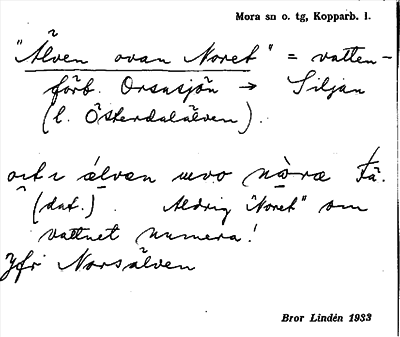 Mora sn o. tg, Kopparb. l.
"Älven ovan Noret" = vatten-
förb. Orsasjön → Siljan
(l. Österdalälven).
(dat.). Aldrig "Noret" om
vattnet numera!
Jfr Norsälven
Bror Lindén 1933